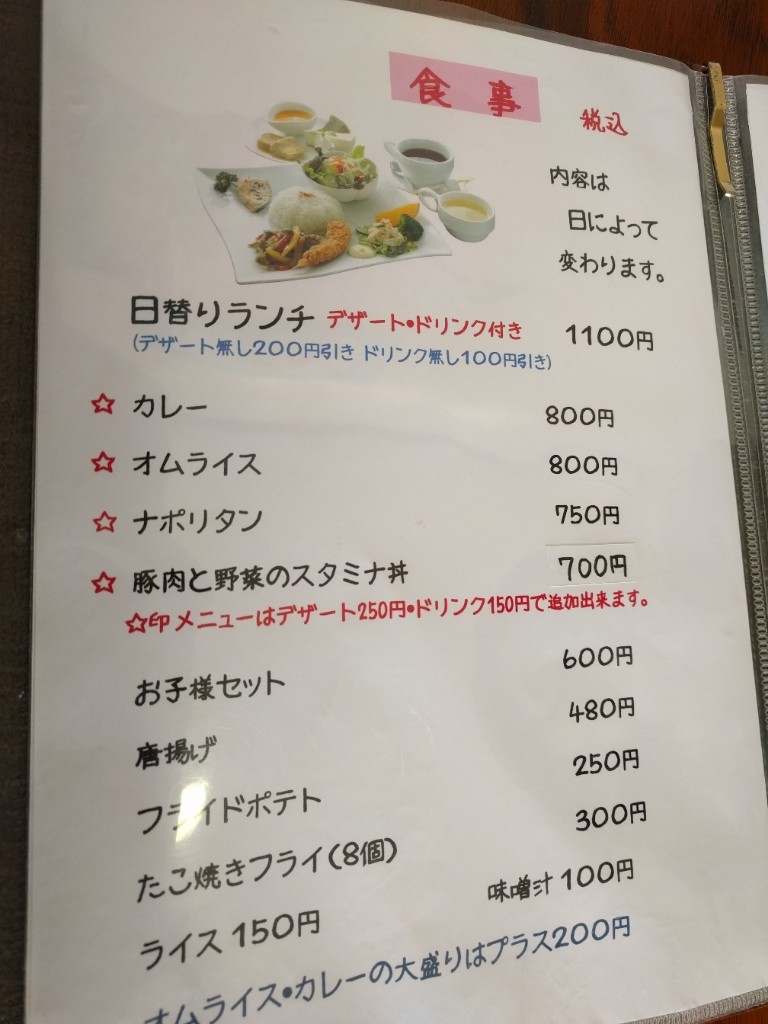 食事
税込
内容は
日によって
変わります。
日替りランチ デザート•ドリンク付き 1100円
(デザート無し200円引き ドリンク無し100円引き)
☆ カレー 800円
☆ オムライス 800円
☆ ナポリタン 750円
☆ 豚肉と野菜のスタミナ丼 700円
☆印メニューはデザート250円•ドリンク150円で追加出来ます。
お子様セット 600円
唐揚げ 480円
フライドポテト 250円
たこ焼きフライ(8個) 300円
ライス 150円 味噌汁 100円
オムライス•カレーの大盛りはプラス200円